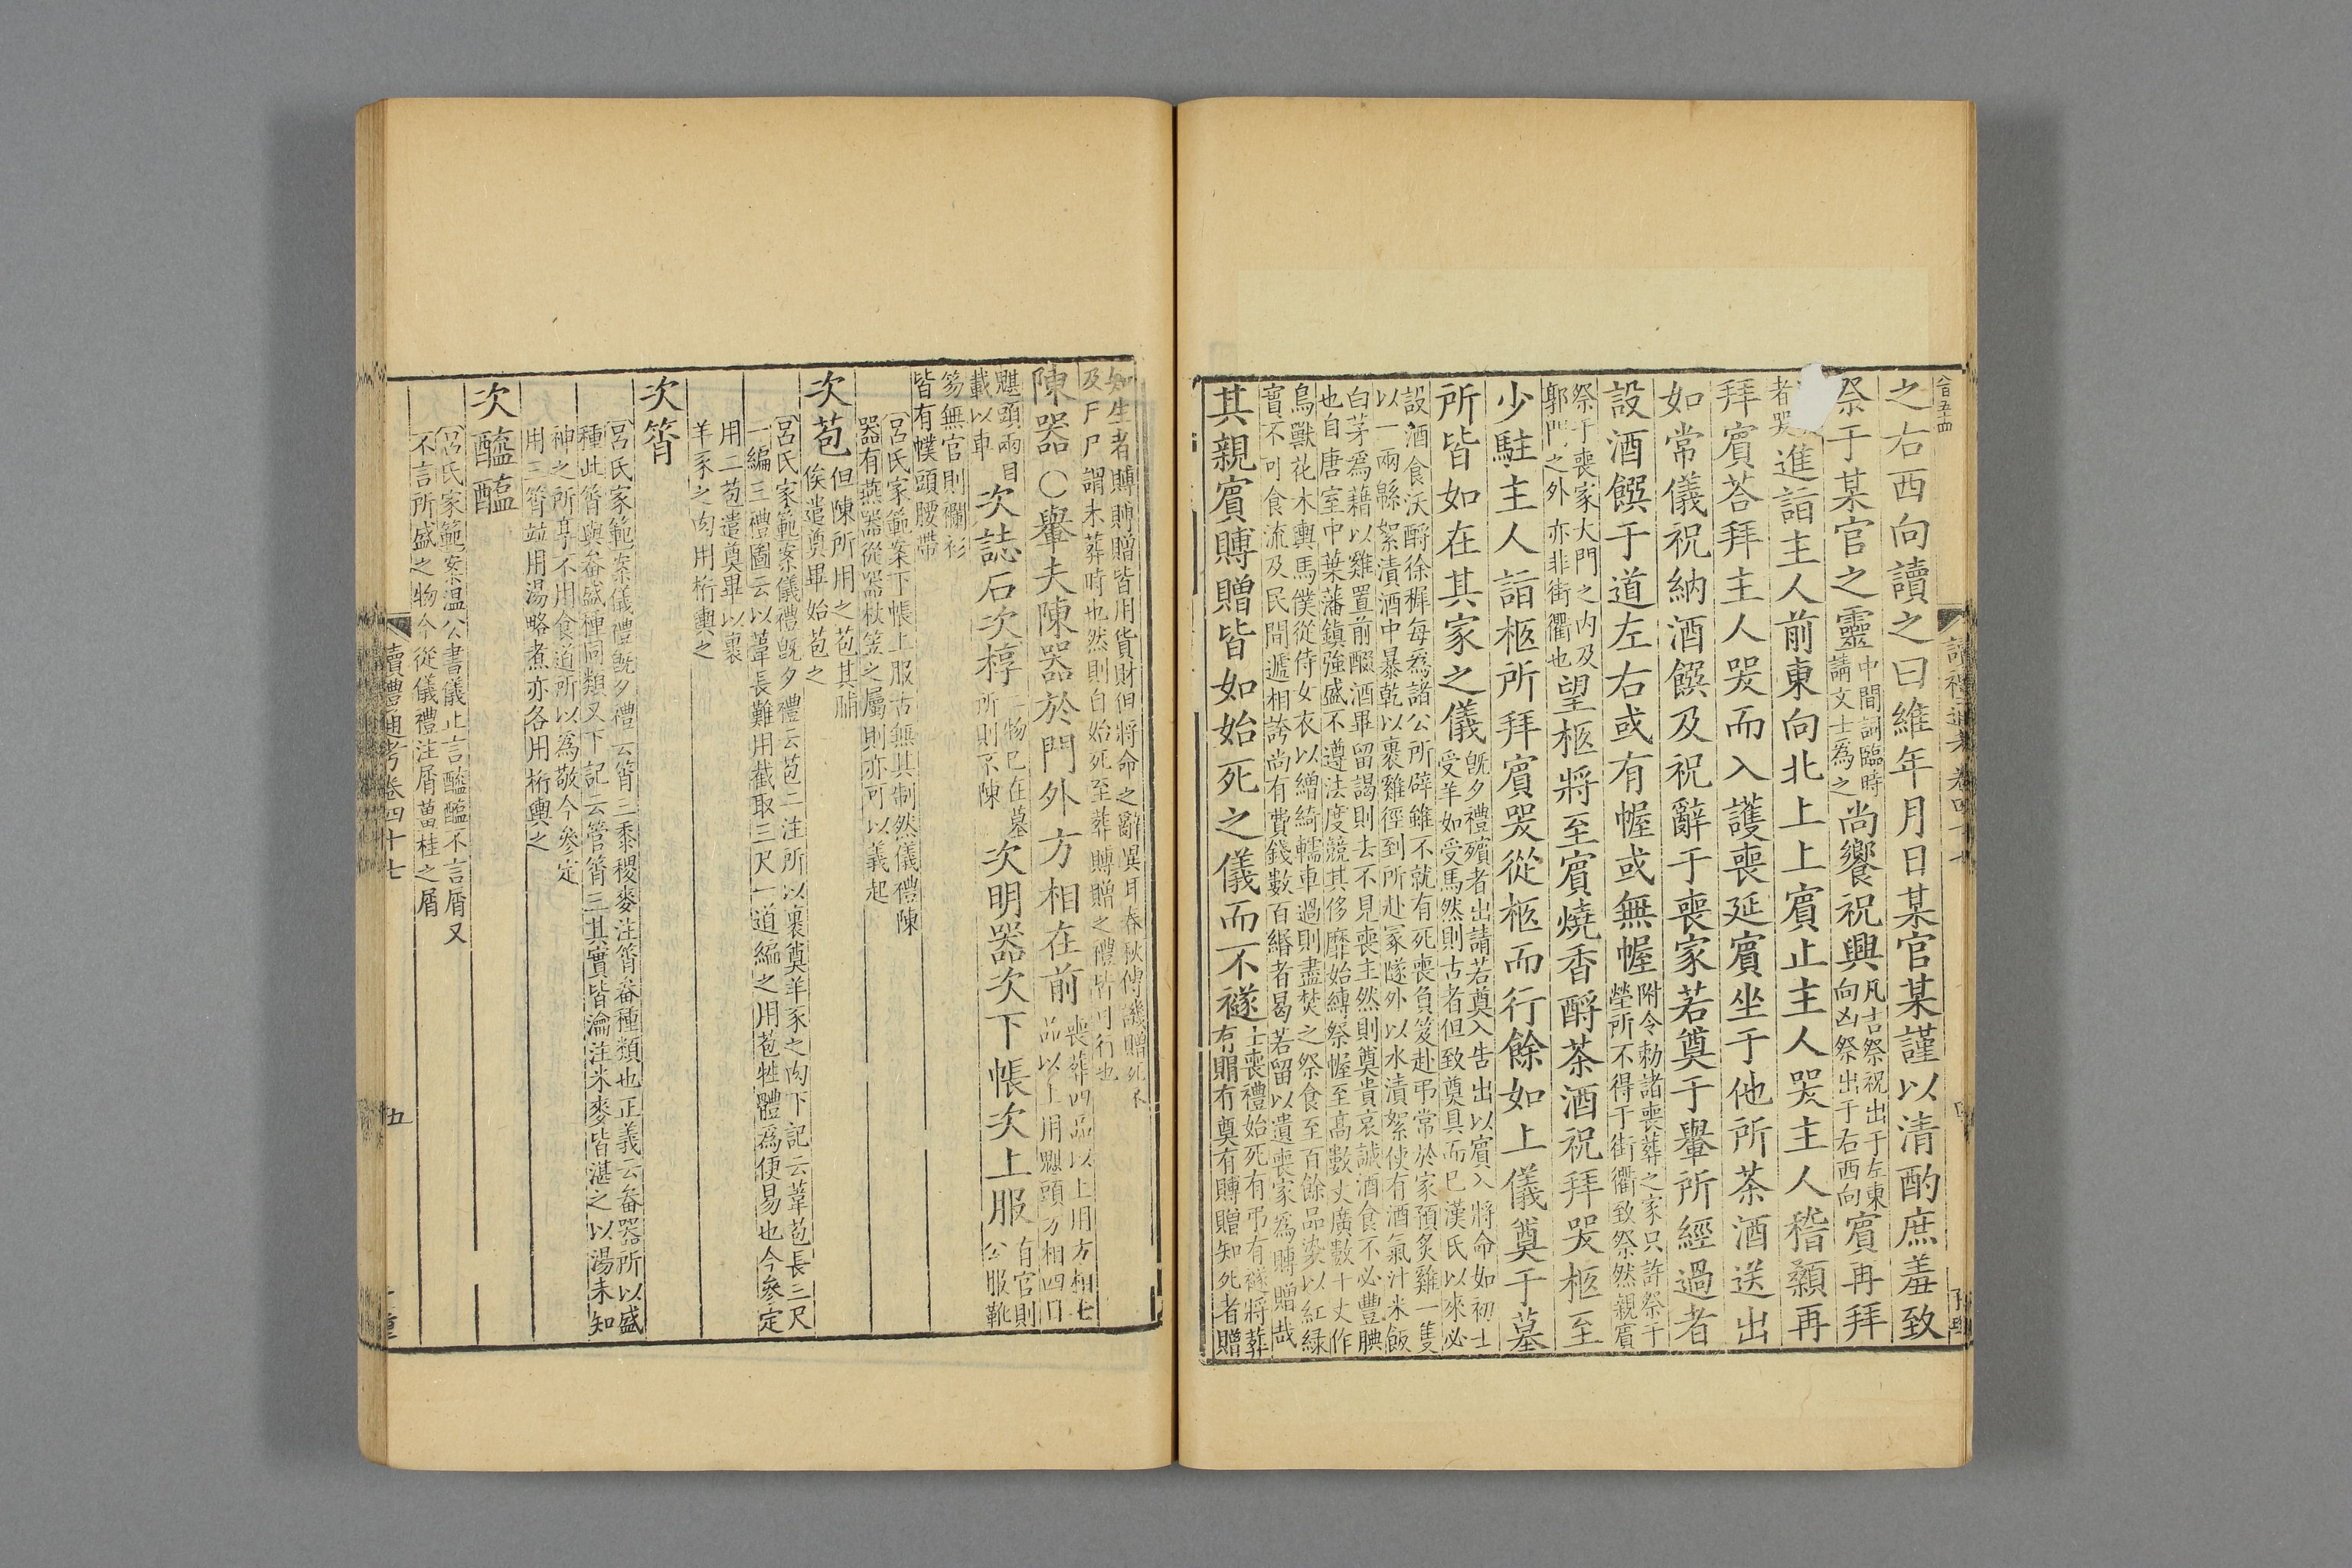 之右西向讀之曰維年月日某官某謹以清酌庶羞致
祭于某官之靈中間詞臨時請文士爲之尚饗祝興凡吉祭祝出于左東向凶祭出于右西向賓再拜
者哭進詣主人前東向北上上賓止主人哭主人稽顙再
拜賓荅拜主人哭而入護喪延賓坐于他所茶酒送出
如常儀祝納酒饌及祝辭于喪家若奠于轝所經過者
設酒饌于道左右或有幄或無幄附令勑諸喪葬之家只許祭于塋所不得于街衢致祭然親賓
祭于喪家大門之内及郭門之外亦非街衢也望柩將至賓燒香酹茶酒祝拜哭柩至
少駐主人詣柩所拜賓哭從柩而行餘如上儀奠于墓
所皆如在其家之儀旣夕禮殯者出請若奠入告出以賓入將命如初士受羊如受馬然則古者但致奠具而已漢氏以來必
設酒食沃酹徐穉每爲諸公所辟雖不就有死喪負笈赴弔常於家預炙雞一隻以一兩緜絮漬酒中暴乾以裹雞徑到所赴冢隧外以水漬絮使有酒氣汁米飯
白茅爲藉以雞置前醊酒畢留謁則去不見喪主然則奠貴哀誠酒食不必豐腆也自唐室中葉藩鎮強盛不遵法度競其侈靡始縛祭幄至高數丈廣數十丈作
鳥獸花木輿馬僕從侍女衣以繒綺轜車過則盡焚之祭食至百餘品染以紅緑實不可食流及民間遞相誇尚有費錢數百緡者曷若留以遺喪家爲賻贈哉
其親賓賻贈皆如始死之儀而不襚士喪禮始死有弔有襚將葬有賵有奠有賻贈知死者贈
知生者賻賻贈皆用貨財但將命之辭異耳春秋傳譏贈死不及尸尸謂未葬時也然則自始死至葬賻贈之禮皆可行也
陳器〇轝夫陳器於門外方相在前喪葬四品以上用方相七品以上用魌頭方相四目
魌頭兩目載以車次誌石次椁二物已在墓所則不陳次明器次下帳次上服有官則公服靴
笏無官則襴衫皆有幞頭腰帶
〔呂氏家範案下帳上服古無其制然儀禮陳
器有燕器從器杖笠之屬則亦可以義起
次苞但陳所用之苞其脯俟遣奠畢始苞之
〔呂氏家範案儀禮旣夕禮云苞二注所以裹奠羊豕之肉下記云葦苞長三尺
一編三禮圖云以葦長難用截取三尺一道編之用苞牲體爲便易也今參定
用二苞遣奠畢以裹
羊豕之肉用桁輿之
次筲
〔呂氏家範案儀禮旣夕禮云筲三黍稷麥注筲畚種類也正義云畚器所以盛
種此筲與畚盛種同類又下記云菅筲三其實皆瀹注米麥皆湛之以湯未知
神之所享不用食道所以爲敬今參定
用三筲竝用湯略煮亦各用桁輿之
次醯醢
〔呂氏家範案溫公書儀止言醯醢不言屑又
不言所盛之物今從儀禮注屑薑桂之屑
讀禮通考卷四十七
五